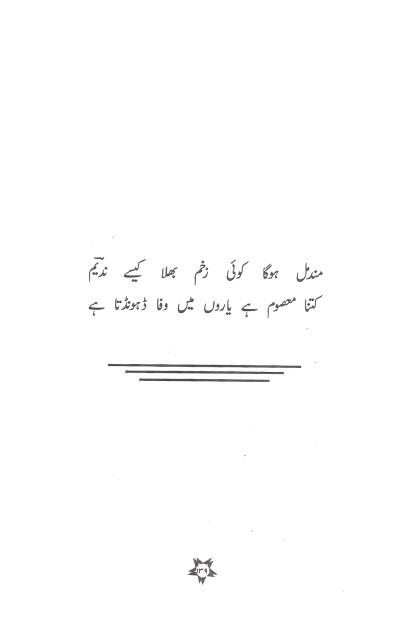 مندمل ہوگا کوئی زخم بھلا کیسے ندیمؔ
کتنا معصوم ہے یاروں میں وفا ڈہونڈتا ہے
۱۳۹